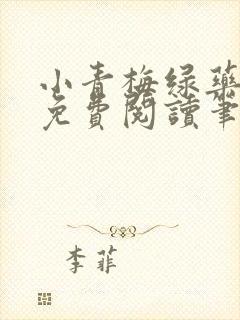 小青梅绿药
免費閱讀筆
李菲